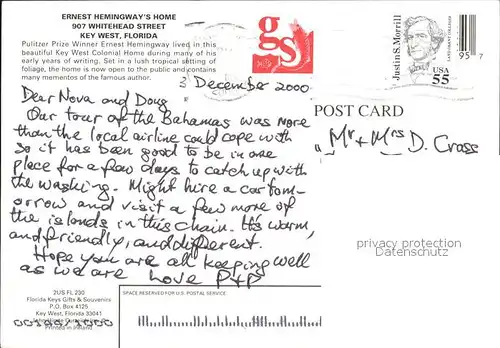 ERNEST HEMINGWAY'S HOME
907 WHITEHEAD STREET
KEY WEST, FLORIDA
Pulitzer Prize Winner Ernest Hemingway lived in this
beautiful Key West Colonial Home during many of his
early years of writing. Set in a lush tropical setting of
foliage, the home is now open to the public and contains
many mementos of the famous author.
gs
Justin S. Morrill
USA
55
3 December 2000
Dear Nova and Doug
Our tour of the Bahamas was more
than the local airline could cope with
so it has been good to be in one
place for a few days to catch up with
the washing. Might hire a car tom-
orrow and visit a few more of
the islands in this chain. It's warm,
and friendly, and different.
Hope you are all keeping well
as we are Love P+P
POST CARD
Mr + Mrs D. Cross
permission required
Datenschutz
2US FL 290
Florida Keys Gifts & Souvenirs
P.O. Box 4125
Key West, Florida 33041
Printed in Ireland
SPACE RESERVED FOR U.S. POSTAL SERVICE